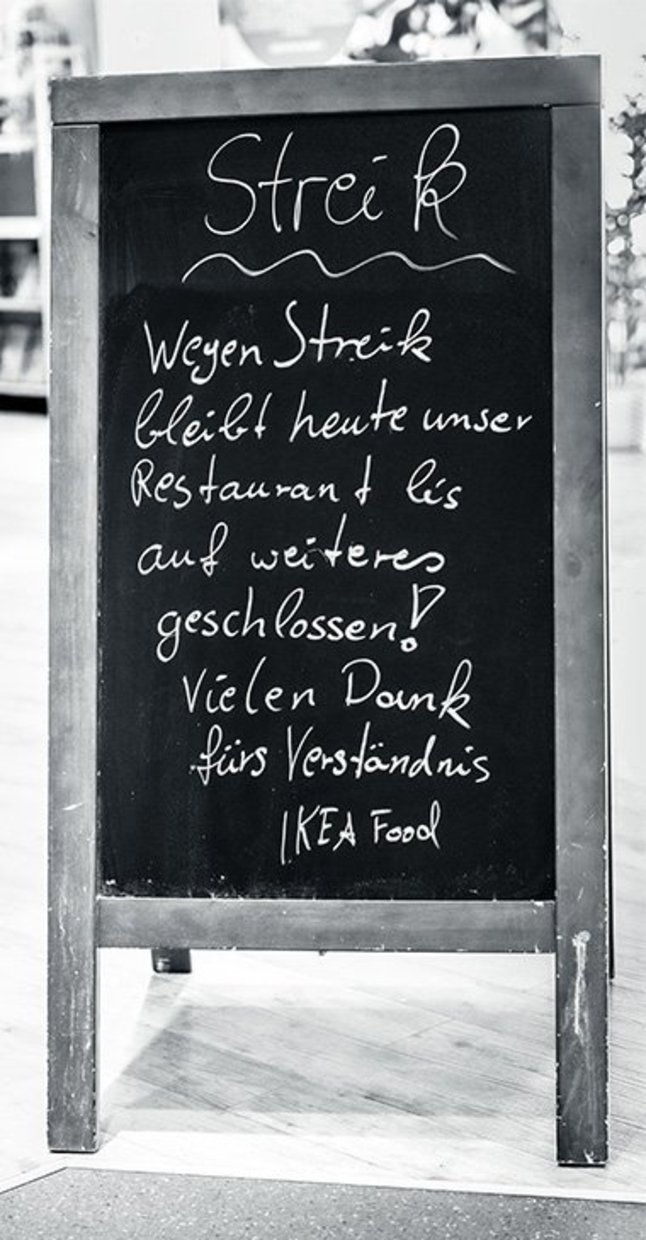 Streik
Wegen Streik
bleibt heute unser
Restaurant bis
auf weiteres
geschlossen!
Vielen Dank
fürs Verständnis
IKEA Food